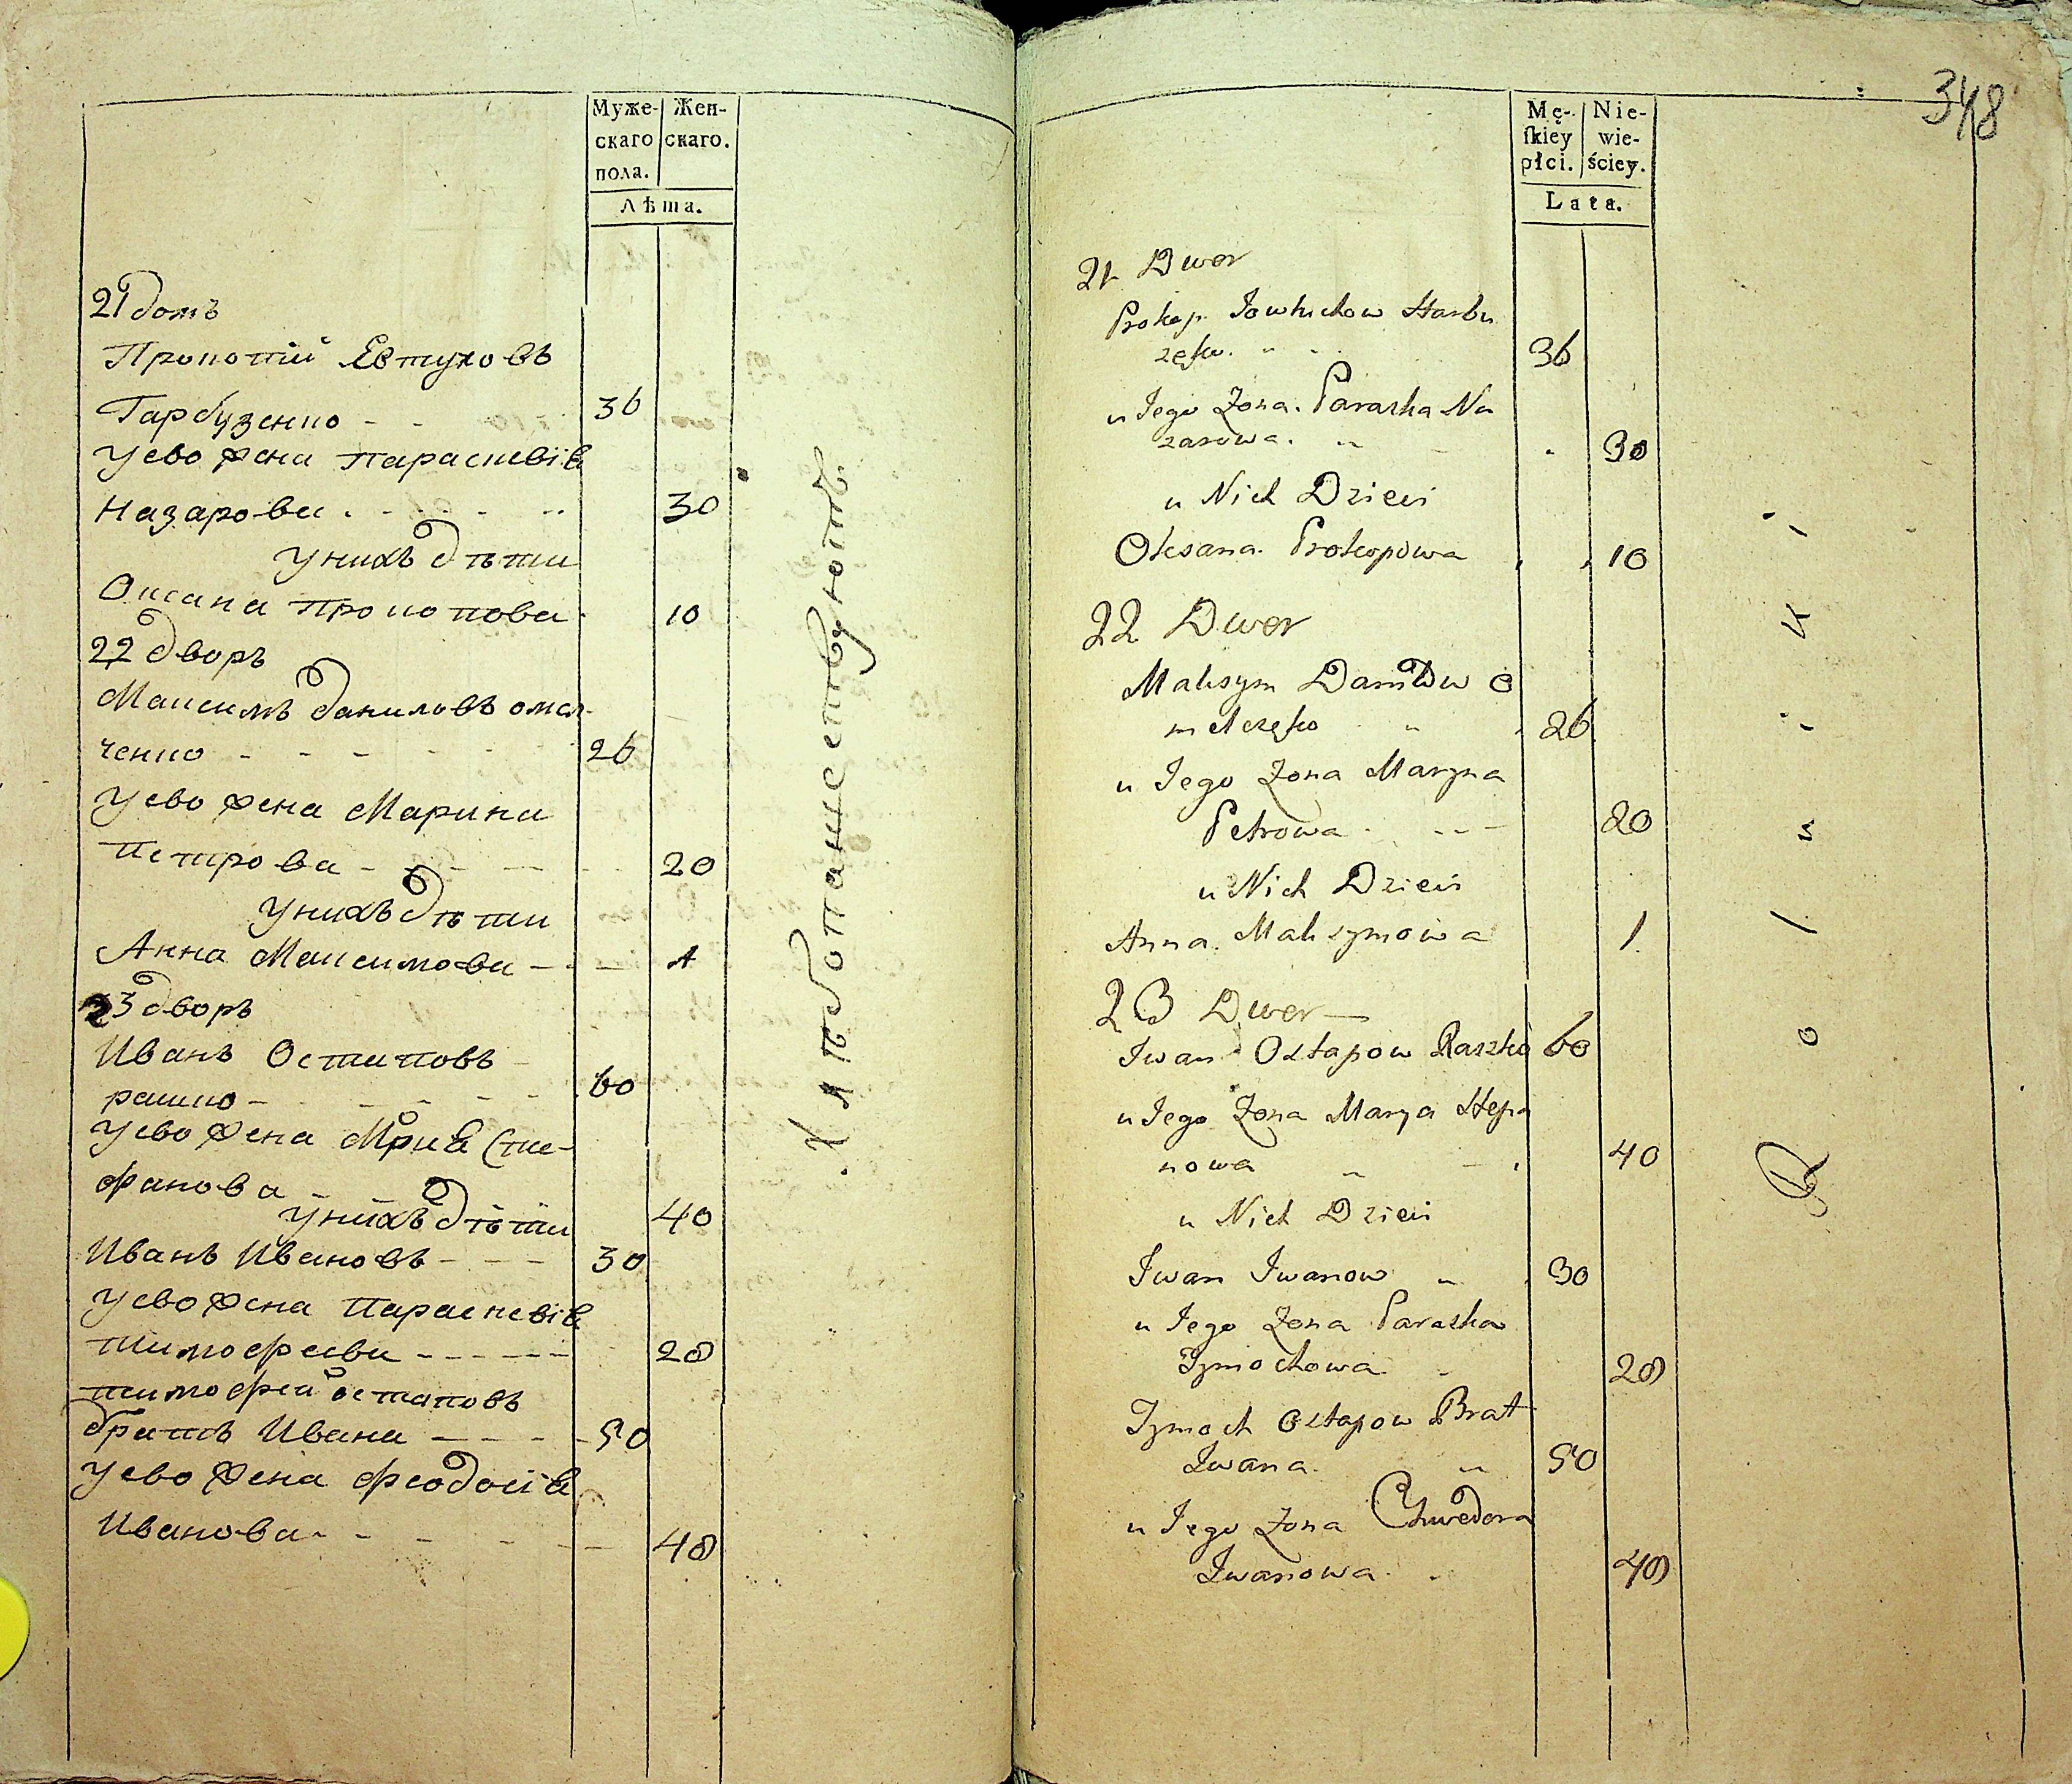 Муже-
скаго
пола.
Жен-
скаго.
Лѣта.
21 домъ
Прокопій Евтуховъ
Гарбузенко - - 36
Уево жена Параскевія
Назарова - - - 30
Унихъ дѣти
Оксана Прокопова 10
22 дворъ
Максимъ Даниловъ омел-
ченко - - - 26
Уево жена Марина
Петрова - - - 20
Унихъ дѣти
Анна Максимова - - 1
23 дворъ
Иванъ Остаповъ
рашко - - - 60
Уево жена Мрия Сте-
фанова - - 40
Унихъ дѣти
Иванъ Ивановъ - - - 30
Уево жена Параскевія
Тимофеева - - - 20
Тимофей остаповъ
братъ Ивана - - - 50
Уево жена Феодосія
Иванова - - - 40
Хлѣбопашествуютъ
348
Mę-
ſkiey
płci.
Nie-
wie-
ściey.
Lata.
21 Dwor
Prokop Jowtuchow Harbu
zęko 36
u Jego Zona Paraska Na
zarowa 30
u Nich Dzieci
Oksana Prokopowa 10
22 Dwor
Maksym Daniłow O
melczęko 26
u Jego Zona Maryna
Petrowa 20
u Nich Dzieci
Anna Maksymowa 1
23 Dwor
Iwan Ostapow Raszko 60
u Jego Zona Marya Stepa
nowa 40
u Nich Dzieci
Iwan Iwanow 30
u Jego Zona Paraska
Tymochowa 20
Tymoch Ostapow Brat
Iwana 50
u Jego Zona Chwedora
Iwanowa 40
Rolniki